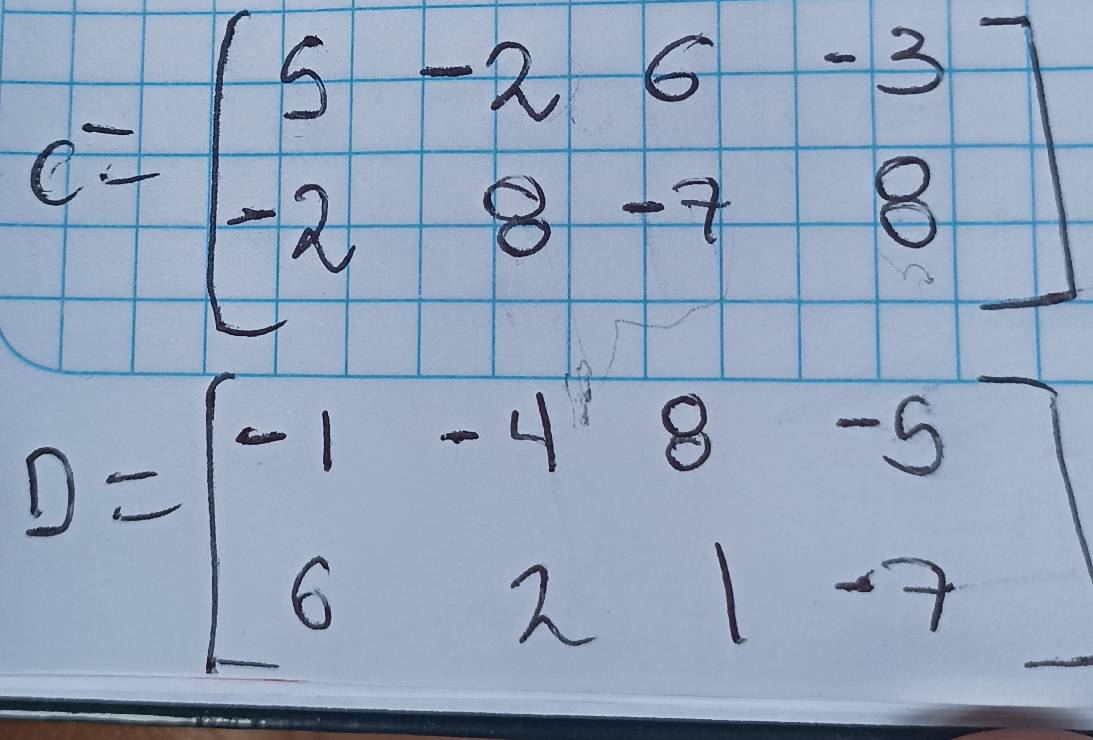 C = [ 5 -2 6 -3
-2 8 -7 8 ]
D = [ -1 -4 8 -5
6 2 1 -7 ]